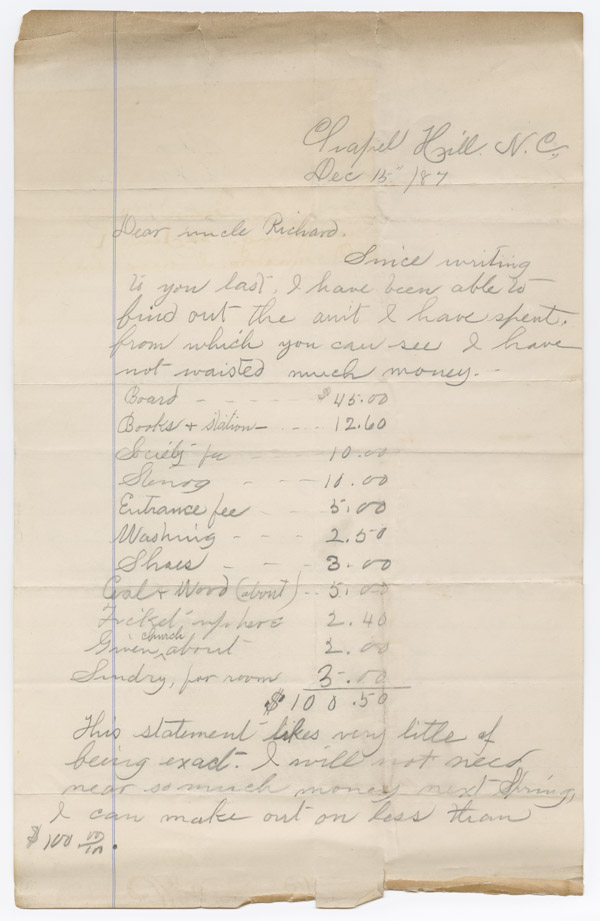 Chapel Hill. N.C.,
Dec 15" /87
Dear uncle Richard.
Since writing
to you last, I have been able to
find out the am't I have spent,
from which you can see I have
not waisted much money. -
Board - - - - $45.00
Books & station - - - - 12.60
Society fee - - - 10.00
Stenog - - - 10.00
Entrance fee - - 5.00
Washing - - - 2.50
Shoes - - - 3.00
Coal & Wood (about) - - 5.00
Ticket, up here 2.40
Given church about 2.00
Sundry, for room 3.00
$100.50
This statement likes very little of
being exact. I will not need
near so much money next Spring,
I can make out on less than
$100 00/00.